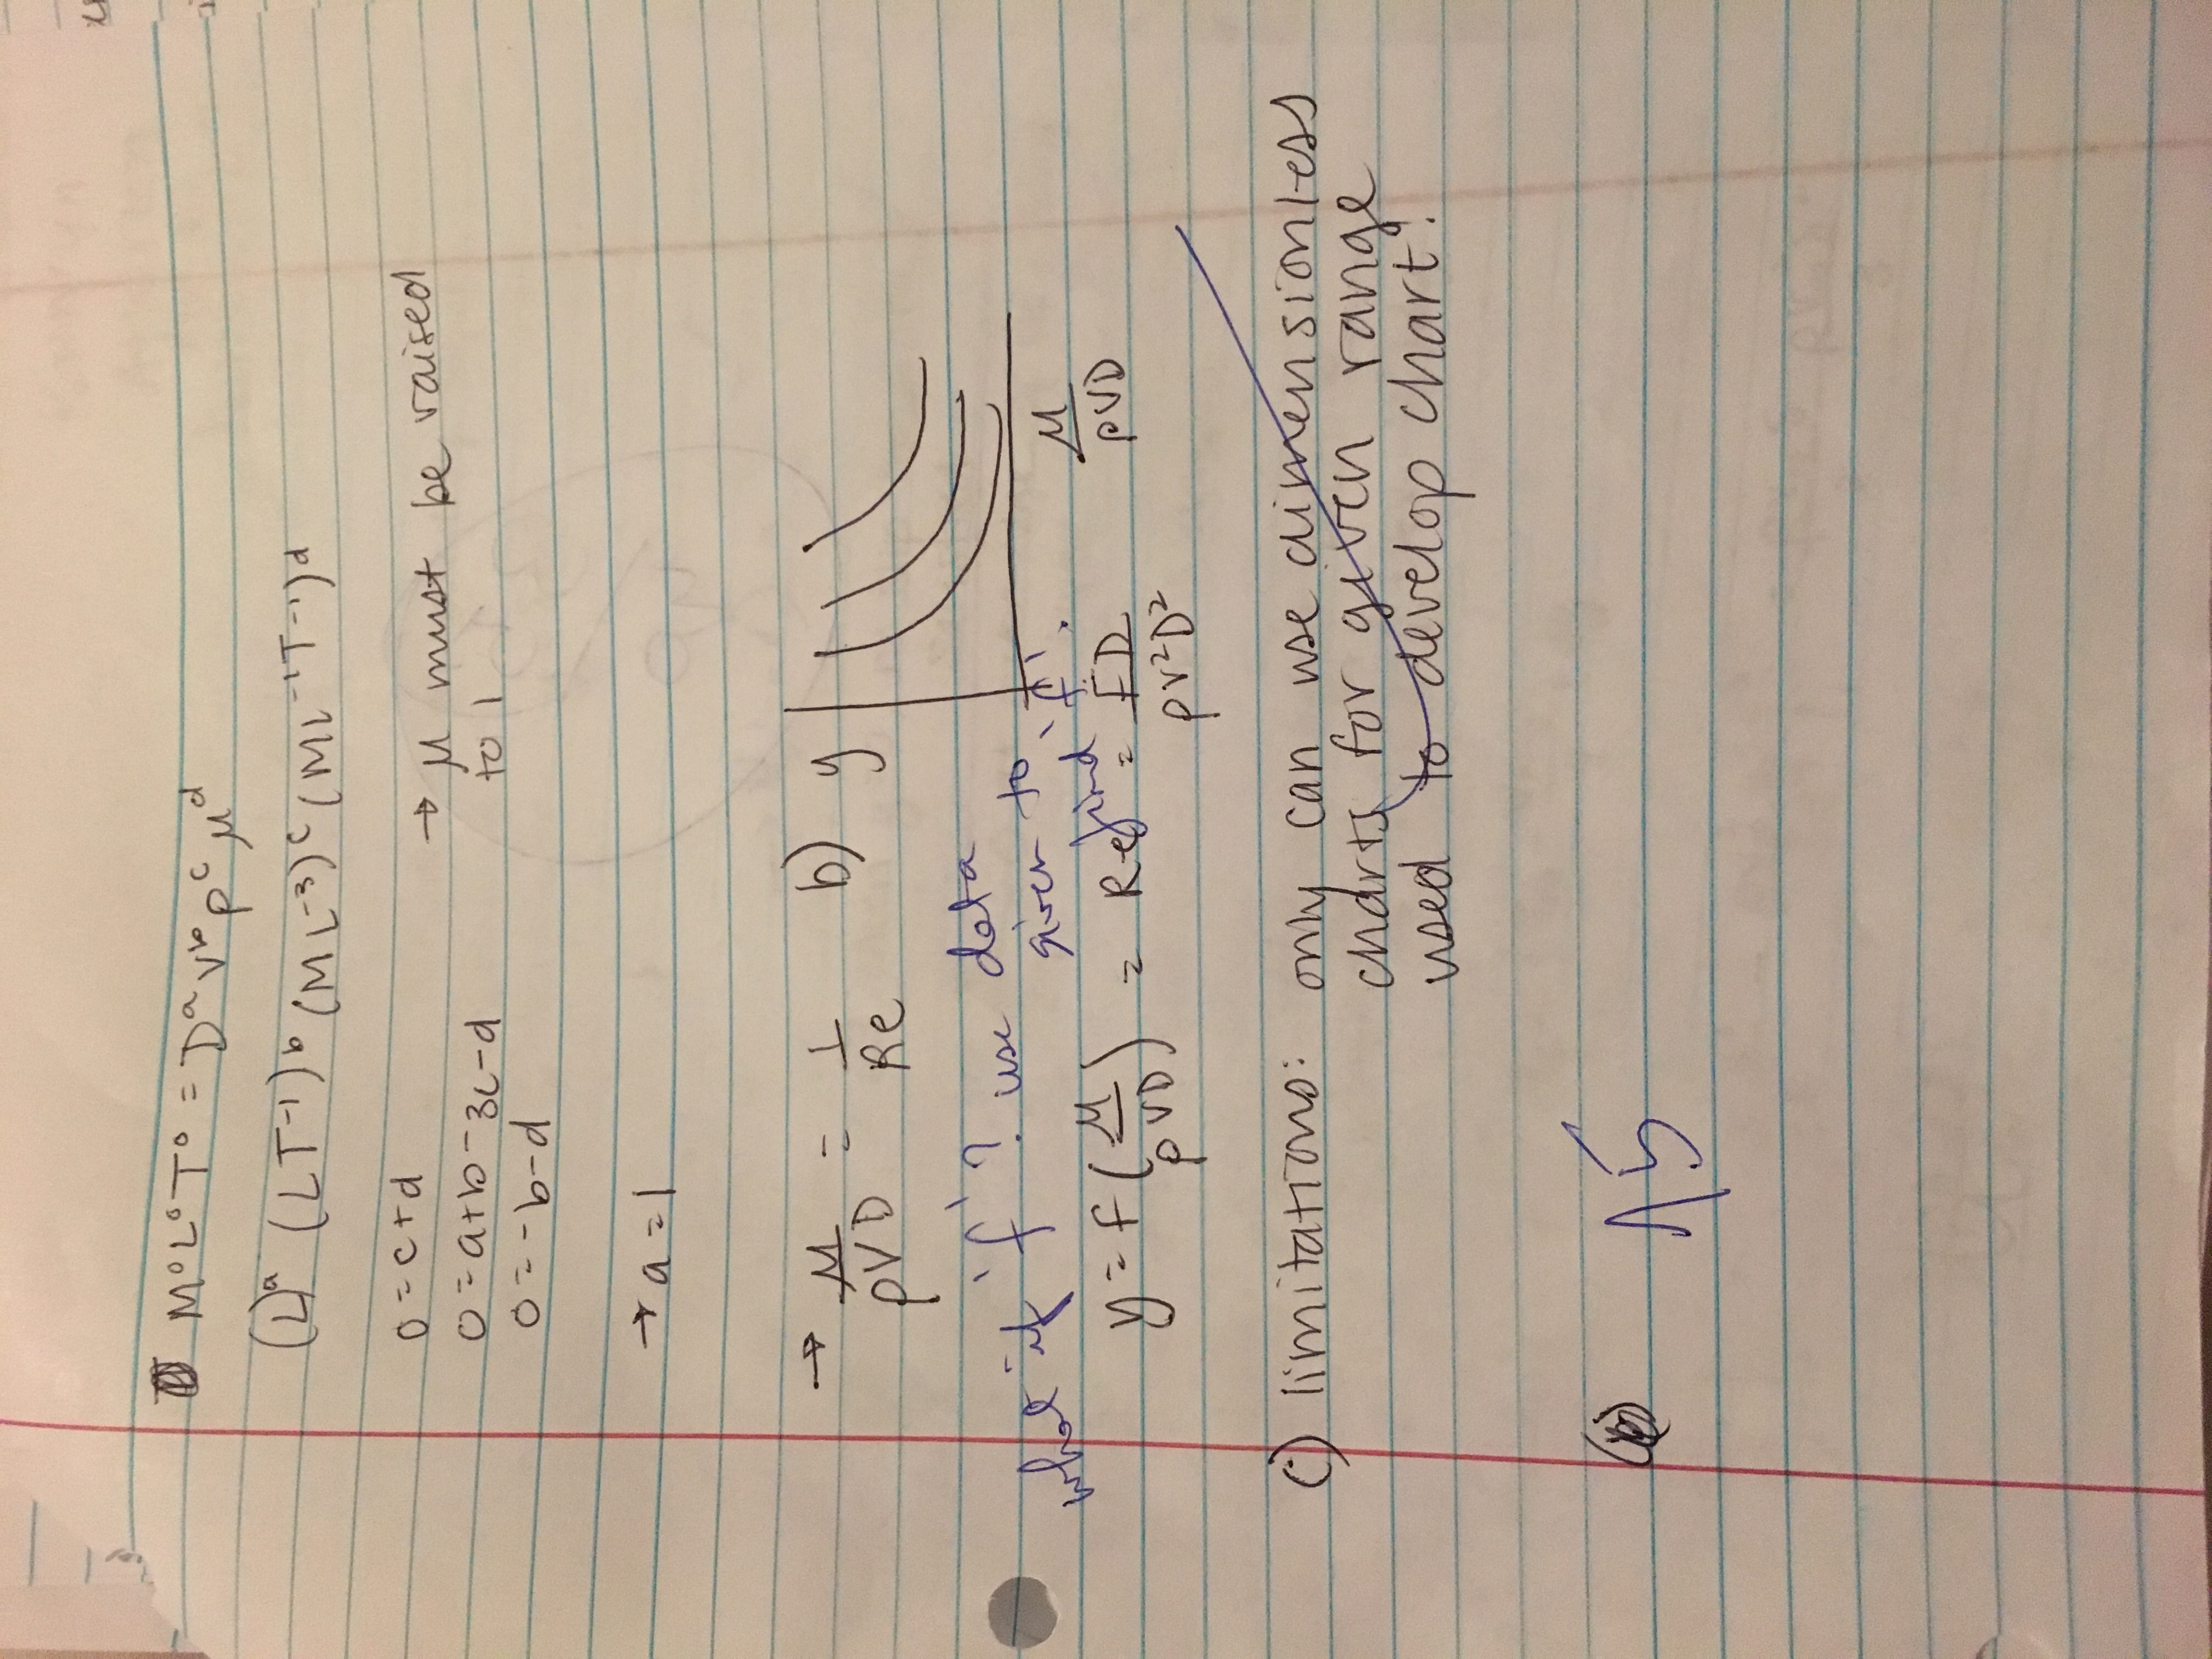 M⁰L⁰T⁰ = Dᵃ Vᵇ ρᶜ μᵈ
(L)ᵃ (LT⁻¹)ᵇ (ML⁻³)ᶜ (ML⁻¹T⁻¹)ᵈ
0 = c+d
0 = a+b-3c-d
0 = -b-d
→ μ must be raised
to 1
→ a = 1
→ μ/ρVD = 1/Re
b) y
μ/ρVD
what is 'f'? use data
given to
find 'f'.
y = f(μ/ρVD) = Re = FD/ρV²D²
c) limitations: only can use dimensionless
charts for given range
used to develop chart!
15